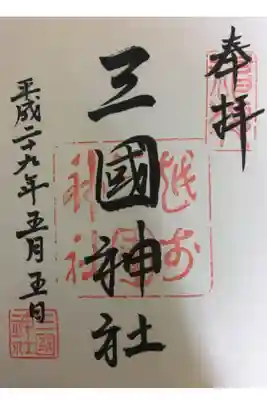 奉拝
三國神社
平成二十九年五月五日